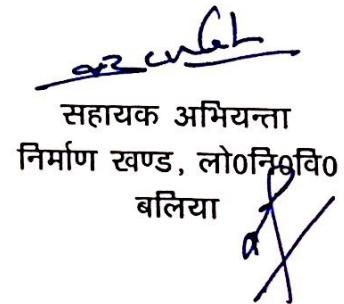 सहायक अभियन्ता
निर्माण खण्ड, लो0नि0वि0
बलिया